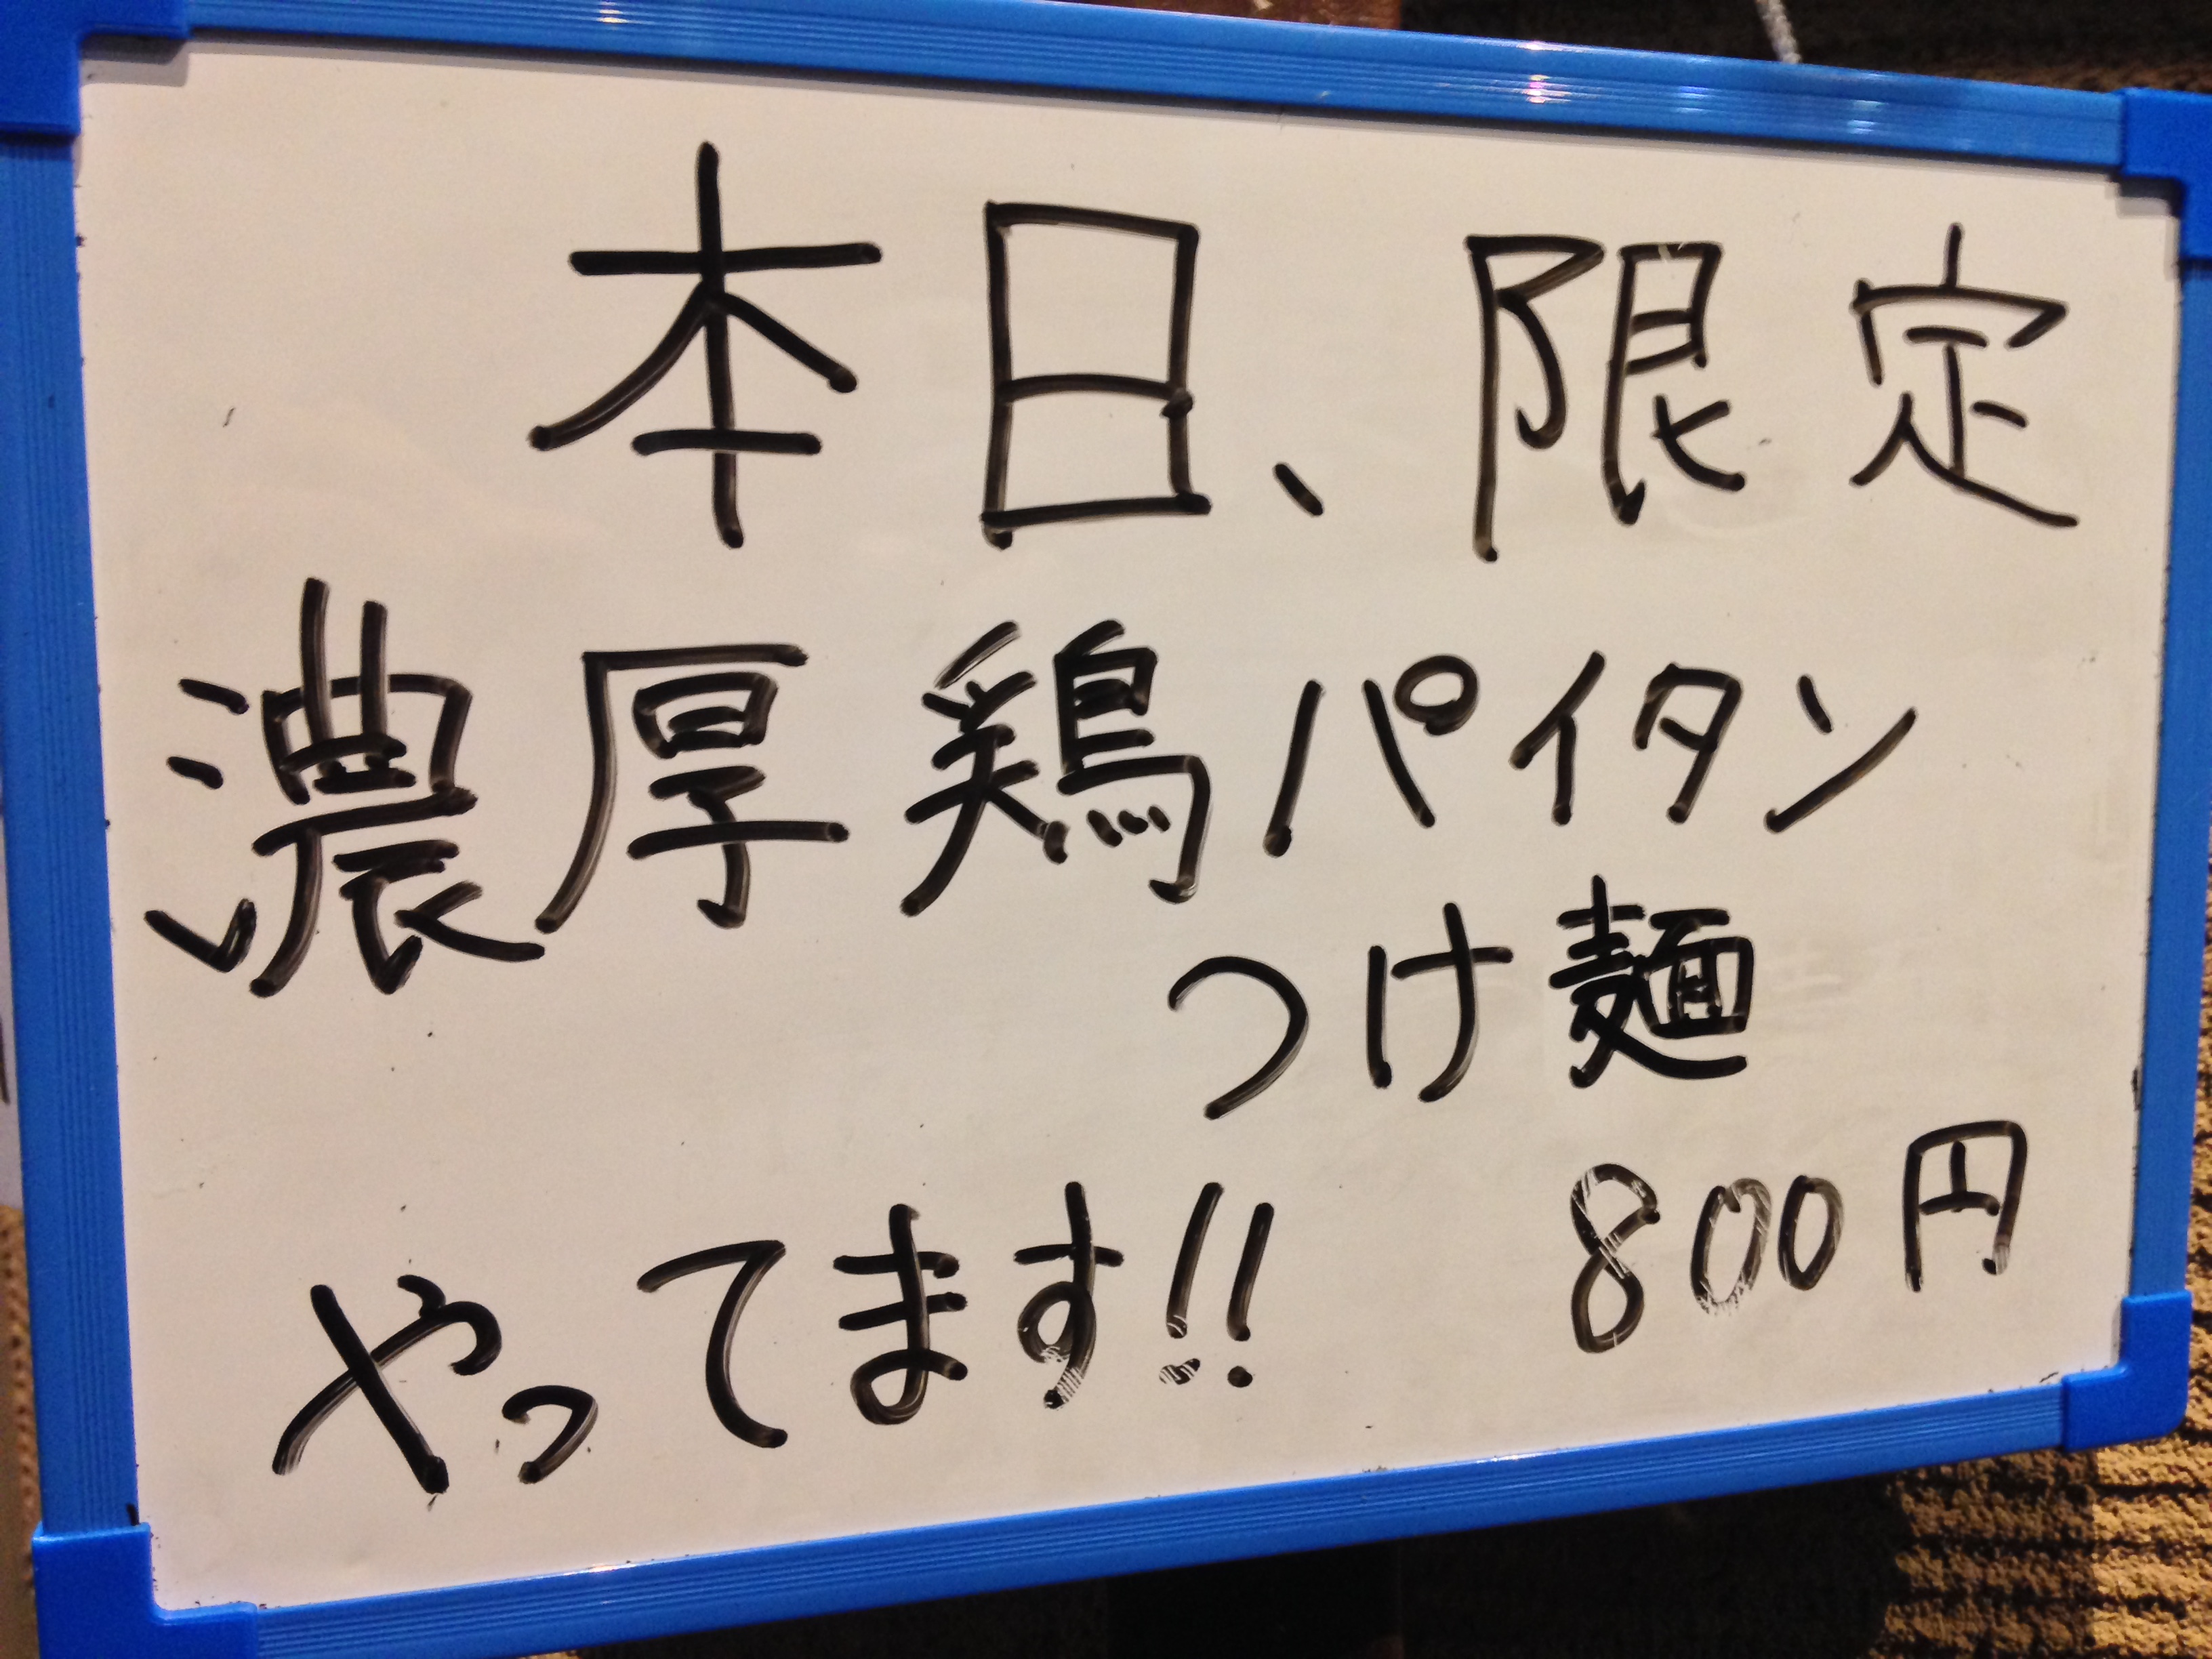 本日、限定
濃厚鶏パイタン
つけ麺
800円
やってます!!